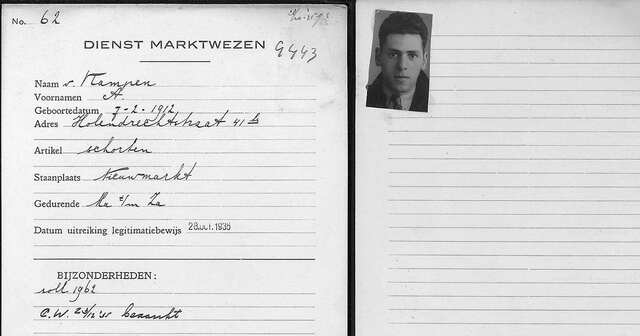 No. 62
DIENST MARKTWEZEN 9443
Naam v. Kampen
Voornamen A.
Geboortedatum 7-2-1912
Adres Holendrechtstraat 41 b
Artikel schorten
Staanplaats Nieuwmarkt
Gedurende Ma t/m Za
Datum uitreiking legitimatiebewijs 28.OCT.1935
BIJZONDERHEDEN:
1962
C.W.